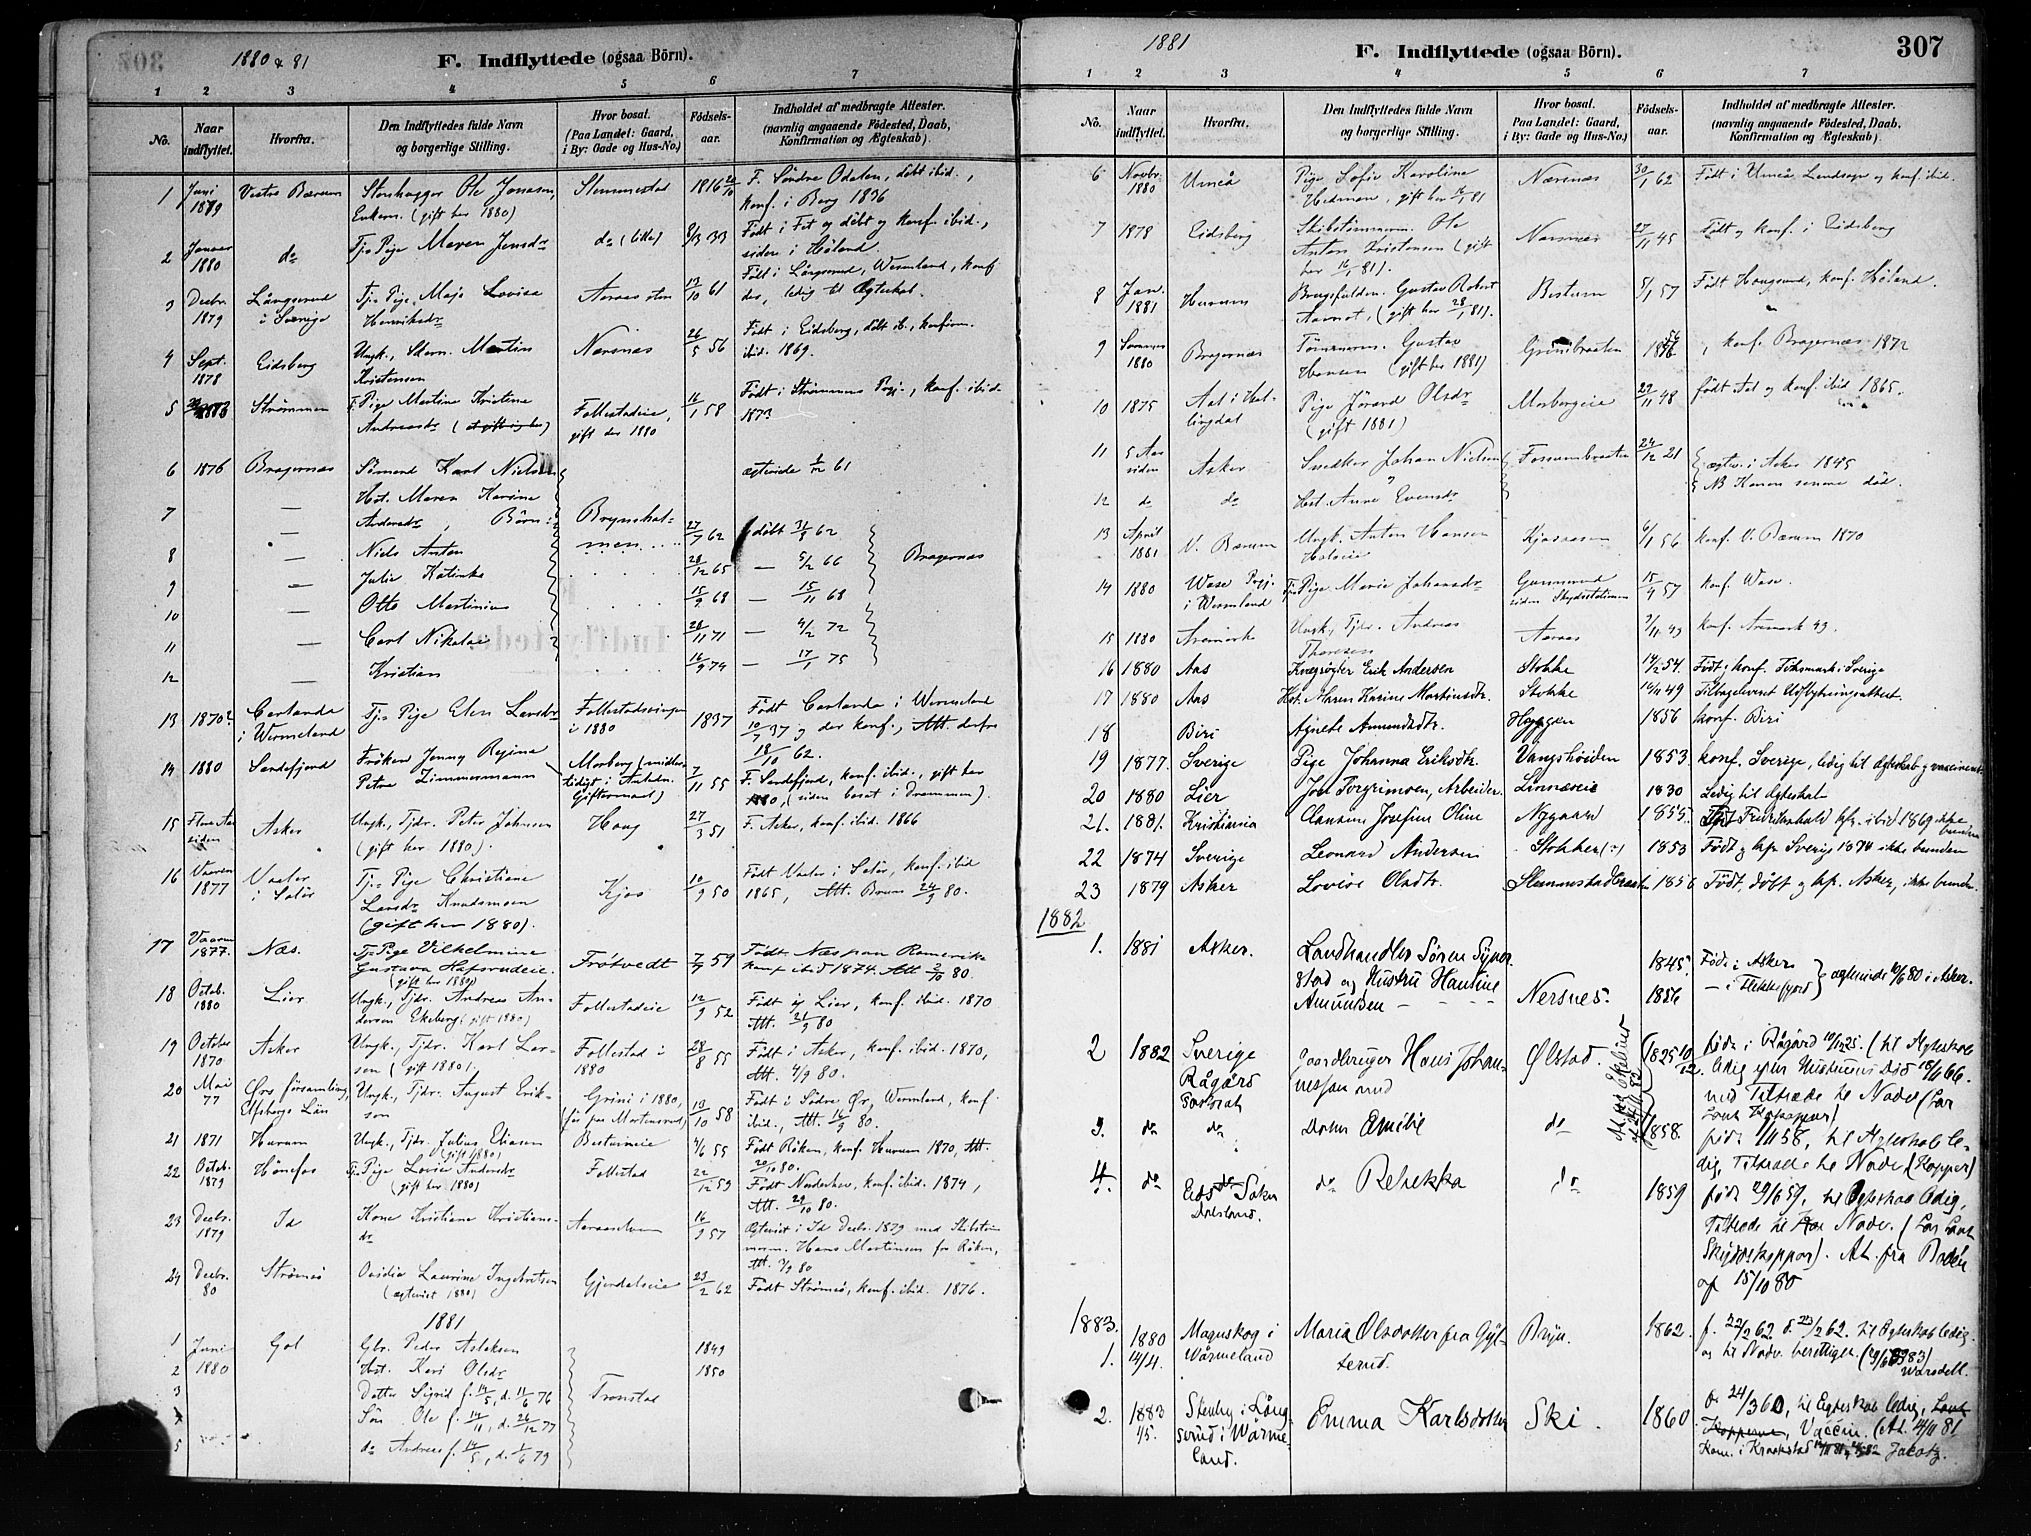 1880 & 81
F. Indflyttede (ogsaa Börn).
1 2 3 4 5 6 7
No. Naar indflyttet. Hvorfra. Den Indflyttedes fulde Navn og borgerlige Stilling. Hvor bosat. (Paa Landet: Gaard, i By: Gade og Hus-No.) Fødsels-aar. Indholdet af medbragte Attester. (navnlig angaaende Fødested, Daab, Konfirmation og Ægteskab).
1 Juni 1879 Vestre Bærum Stenhugger Ole Jonassen, Enkem. (gift her 1880) Slemmestad 1816 F. Søndre Odalen, döbt ibid., konf. i Borg 1836
2 Januar 1880 do Tj. Pige Maren Jensdr do (lille) 8/3 33 Født i Fet og döbt og konf. ibid., siden i Höland
3 Decbr. 1879 Långserud i Sverige Tj. Pige Maja Lovisa Henriksdr Aaraas 13/10 61 Född i Långserud, Wermland, konf. der, ledig til Ægteskab.
4 Sept. 1878 Eidsberg Ungk., Martin Kristensen Nærsnes 26/5 56 Født i Eidsberg, döbt ib., konfirm. ibid. 1869.
5 Strömmen Tj. Pige Martine Kristine Andreasdr Follestadeie, gift der 1880 16/1 58 Født i Strømmens Pgj., konf. ibid. 1873
6 1876 Bragernæs Sömand Karl Nielsen ægteviede 61
7 — Hst. Maren Karine Andersdr, Börn: Brynshol-
8 — Niels Anton men 27/7 62 döbt 31/8 62
9 — Julie Katinka 28/12 65 — 5/2 66 Bragernæs
10 — Otto Martinius 15/9 68 — 15/11 68
11 — Carl Nikolai 28/11 71 — 4/2 72
12 — Kristian 16/9 74 — 17/1 75
13 1870? Carlanda i Wermeland Tj. Pige Elen Larsdr Follestad i 1880 1837 Født Carlanda i Wermeland 10/7 37 og der konf., Att. derfra 18/10 62.
14 1880 Sandefjord Fröken Jenny Regine Petra Zimmermann Morberg (midlertidigt i Anledn. Giftermaal) 7/11 55 F. Sandefjord, konf. ibid., gift her 1880, (siden bosat i Drammen).
15 Flere Aar siden Asker Ungk., Tjdr. Peter Johnsen (gift her 1880). Haug 27/3 51 F. Asker, konf. ibid. 1866
16 Vaaren 1877 Vaaler i Solör Tj. Pige Christiane Larsdr Knudsmoen (gift her 1880). Kjos 10/9 50 Født Vaaler i Solör, konf. ibid 1865, Att. 24/9 80.
17 Vaaren 1877. Næs. Tj. Pige Vilhelmine Gustava Hafsrudeie. (gift her 1880) Frötvedt 7/9 59 Født Næs paa Romerike konf. ibid 1874. Att. 2/10 80.
18 Octob. 1880 Lier Ungk., Tjdr. Andreas Andersen Ekeberg (gift 1880) Follestadeie 12/9 52 Født i Lier, konf. ibid. 1870 Att. 21/9 80
19 October 1870 Asker Ungk., Tjdr. Karl Larsen (gift 1880). Follestad i 1880 28/8 55 Født i Asker, konf. ibid. 1870, Att. 4/9 80.
20 Mai 77 Ørs församling, Elfsborgs Län Ungk., Tjdr. August Erikson Grini i 1880, (før paa Mortensrud) 13/10 58 Født i Södra Ör, Wermland, konf. ibid., Att. 16/9 80.
21 1871 Hurum Ungk., Tjdr. Julius Eliasen (gift 1880) Bestumeie 4/6 55 Født Röken, konf. Hurum 1870, Att. 20/10 80.
22 Octob. 1879 Hönefos Tj. Pige Lovise Andersdr (gift her 1880) Follestad 22/12 53 Født Norderhov, konf. ibid. 1874, Att. 29/10 80.
23 Decbr. 1879 Id Kone Kristiane Kristiansdr 16/9 57 Ægteviet i Id Decbr. 1879 med Skibstømmerm. Hans Martinsen fra Röken, Att. 7/9 80
24 Decbr. 80 Strömsö Laurine Ingebretsen (ægteviet 1880) Gjerdalseie 23/2 62 Født Strömsö, konf. ibid. 1876.
1881
1 Juni Gol Gbr. Peder Aslaksen 1849
2 1880 Hst. Kari Olsdr 1850
3 Datter Sigrid f. 14/5, d. 11/6 76 Tronstad
Sön Ole f. 14/11, d. 26/12 77
5 do Andreas f. 14/5, d. 1/6 79
1881
F. Indflyttede (ogsaa Börn).
307
1 2 3 4 5 6 7
No. Naar indflyttet. Hvorfra. Den Indflyttedes fulde Navn og borgerlige Stilling. Hvor bosat. Paa Landet: Gaard, i By: Gade og Hus-No.) Fødsels-aar. Indholdet af medbragte Attester. (navnlig angaaende Fødested, Daab, Konfirmation og Ægteskab).
6 Novbr. 1880 Umeå Pige Sofie Karoline Hedman, gift her 81 Nærsnes 30/1 62 Født i Umeå Landsogn og konf. ibid.
7 1878 Eidsberg Skibstømmerm. Ole Anton Kristensen (gift her 81). Nærsnes 27/11 45 Født og konf. i Eidsberg
8 Jan. 1881 Hurum Brugsfuldm. Gustav Robert Aamot, (gift her 28/1 81). Bestum 5/1 57 Født Haugsund, konf. Höland.
9 Sommer 1880 Bragernæs Tömmerm. Gustav Hansen (gift her 1881) Grinibraaten 1856, konf. Bragernæs 1872
10 1875 Aal i Hallingdal Pige Jörand Olsdr (gift 1881) Morbergeie 29/11 48 født Aal og konf. ibid 1865.
11 5 Aar siden Asker Snedker Johan Nielsen Fossumbraaten 24/12 21 ægtev. i Asker 1845
12 do do Hst. Anne Evensdr NB Konen senere död.
13 April 1881 V. Bærum Ungk. Anton Hansen Kjosaasen 6/1 56 konf. V. Bærum 1870
14 1880 Wase Pgj. i Wermland Tj. Pige Maria Johansdr siden Skydsstationen 15/4 57 konf. Wase.
15 1880 Aremark Ungk., Tjdr. Andreas Thoresen Aaraas 7/11 49 konf. Aremark
16 1880 Aas Kvægrögter Erik Andersen Stokke 14/2 54 Født og konf. Töksmark i Sverige
17 1880 Aas Hst. Maren Karine Martinusdtr. Stokke 16/11 49 Tilbageleveret Udflytningsattest.
18 Biri Agnete Amundsdtr. Hyggen 1856 konf. Biri
19 1877. Sverige Pige Johanna Eriksdtr. Vangshöiden 1853. konf. Sverige, ledig til Ægteskab og vaccineret
20 1880 Lier Joh. Torgrimsen, Arbeider Linnæseie 1830 Ledig til Ægteskab
21. 1881. Kristiania Clausen Josefine Oline Nygaard 1855. Født Fredrikshald kfr. ibid 1869 ikke bunden
22 1874 Sverige Leonard Andersen Stokker 1853 Født og kfr. Sverig 1874 ikke bunden
23 1879 Asker Lovise Olsdtr. Slemmestadbraaten 1856 Født, döbt og kfr. Asker, ikke bunden.
1882
1. 1881 Asker. Landhandler Sören Syverstad og Hustru Hantine Amundsen Nersnes. 1845. 1856 Född i Asker — i Flekkefjord ægteviede 10/6 80 i Asker.
2 1882 Sverige Rågård Gaardbruger Hans Johannessen med Ølstad. 1825 10/12 född i Rågård 10/12 25. (til Ægteskab ledig efter Hustruens Död 18/11 66. med Tiltræde til Nadv. (har havt Kopper)
3. do do Datter Emilie do 1858. född 1/11 58, til Ægteskab ledig, Tiltræde til Nadv. (Kopper)
4. do Dalsland. do Rebekka do 1859 född 29/6 59, til Ægteskab ledig, Tiltræde til Nadv. (har havt Skyddskoppor). At. fra af 15/10 80
1883.
1. 1880 14/4. Magnskog i Wärmeland Maria Olsdotter fra Gyltserud. Bryn. 1862. f. 22/2 62 d. 23/2 62. til Ægteskab ledig og til Nadv. berettiget.
2. 1883 1/5. Stenby i Långserud i Wärmeland. Emma Karlsdotter Ski. 1860 f. 24/3 60, til Egteskab ledig, Vaccin. (At. 14/11 81